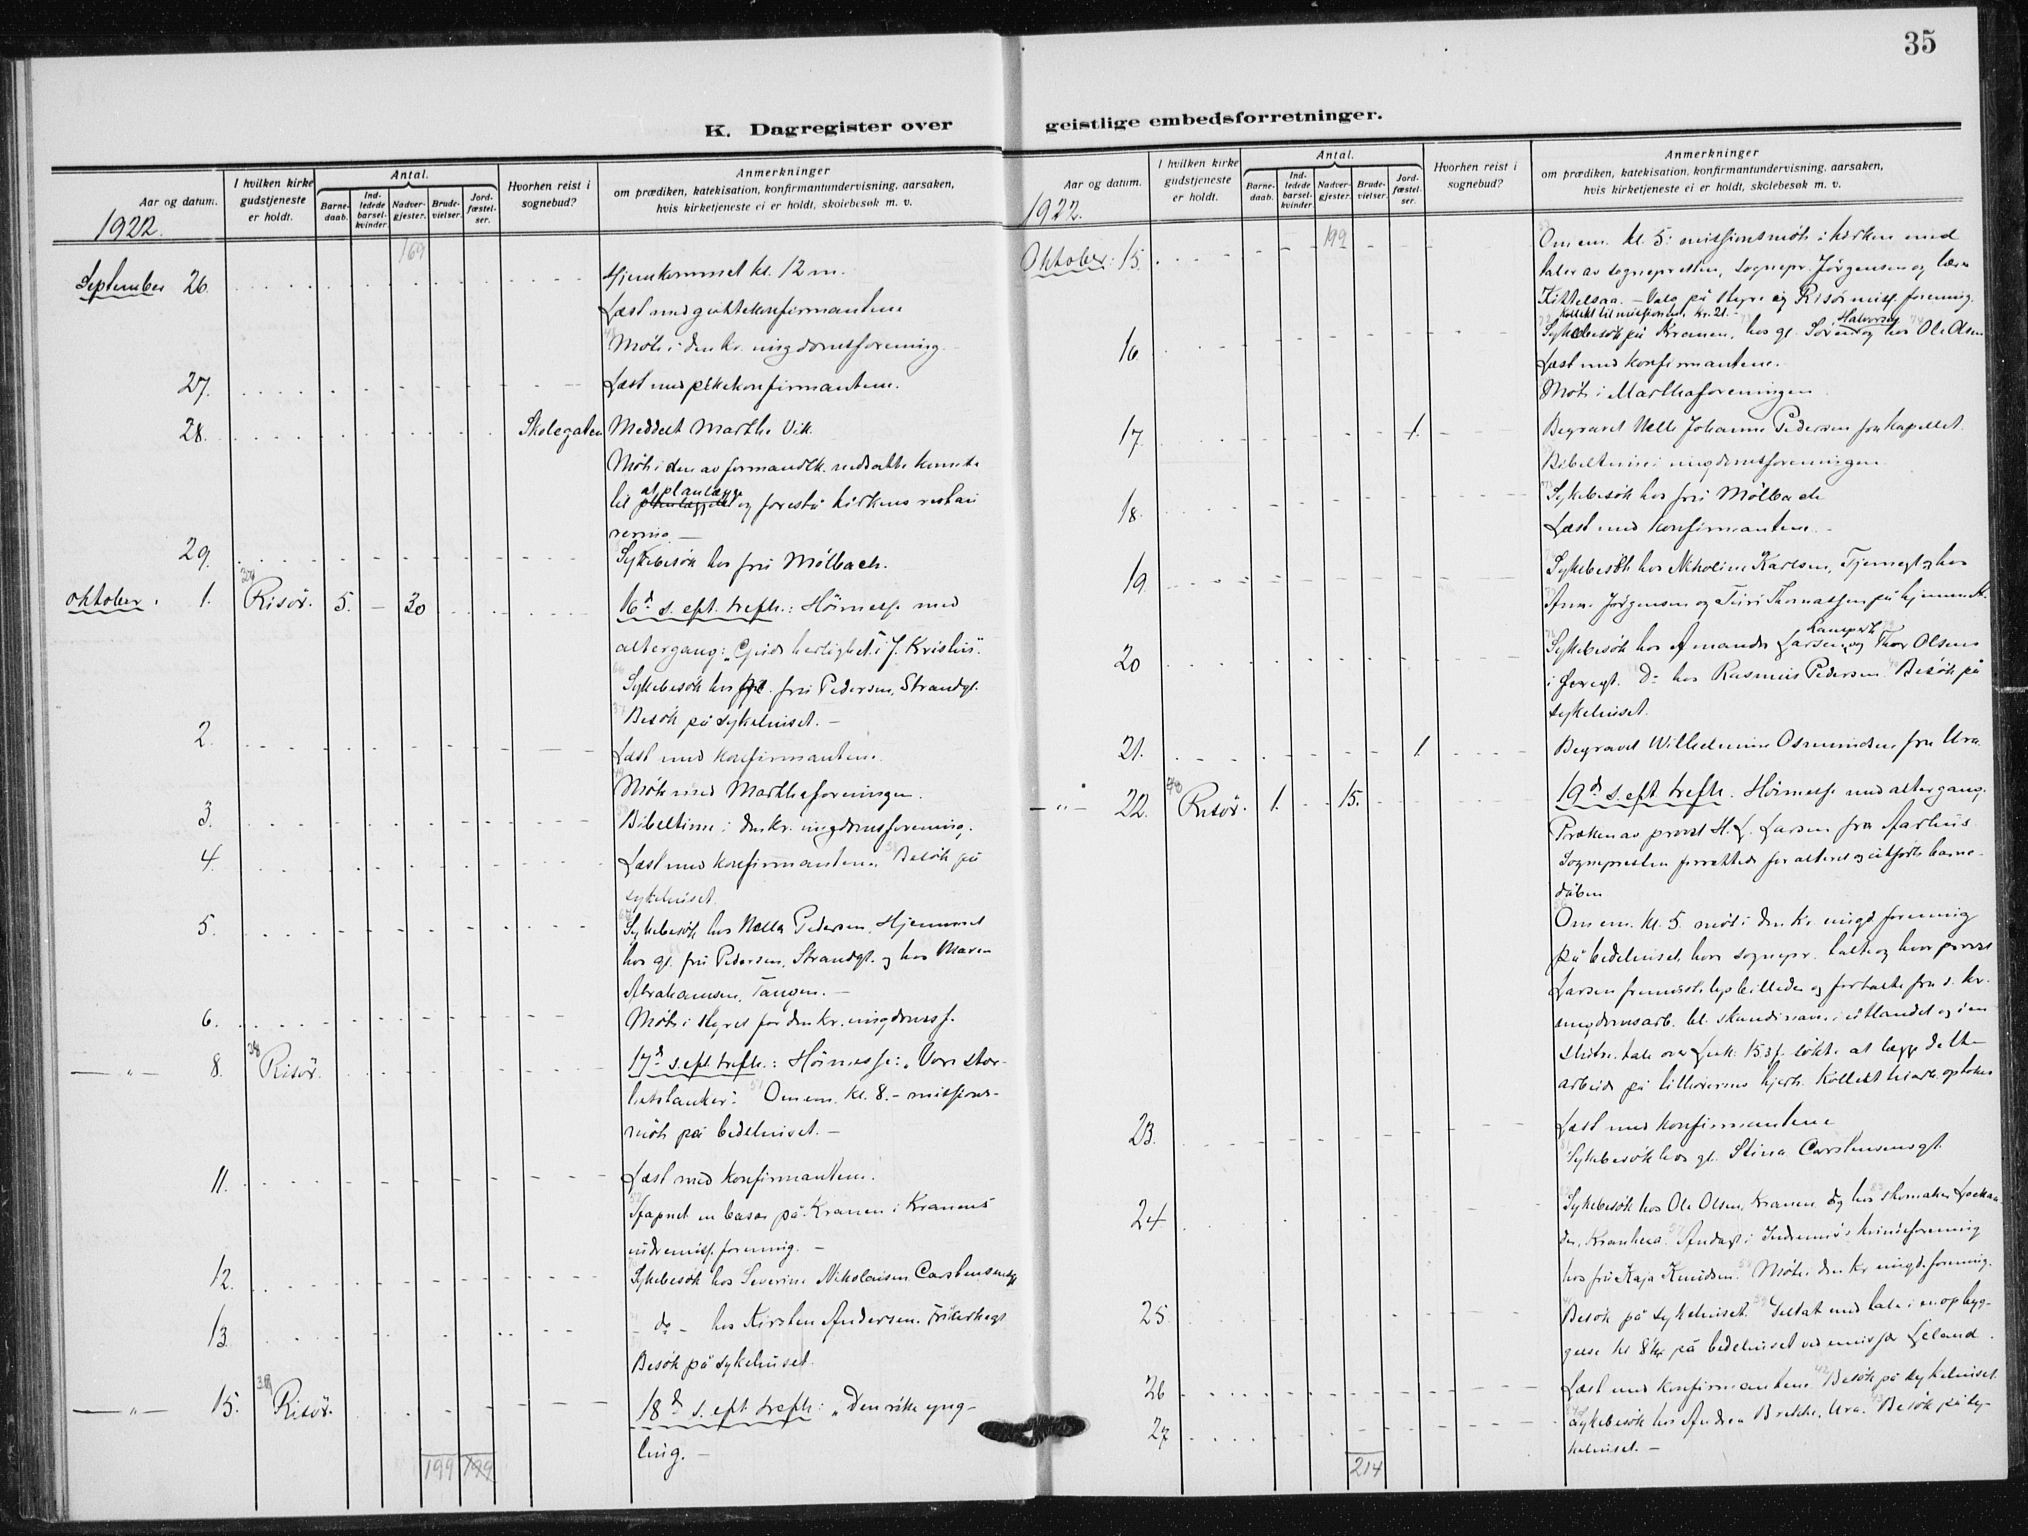 35
K. Dagregister over
geistlige embedsforretninger.
Aar og datum.
I hvilken kirke gudstjeneste er holdt.
Antal.
Barne-daab.
Ind-ledede barsel-kvinder.
Nadver-gjester.
Brude-vielser.
Jord-fæstel-ser.
Hvorhen reist i sognebud?
Anmerkninger
om prædiken, katekisation, konfirmantundervisning, aarsaken,
hvis kirketjeneste ei er holdt, skolebesøk m. v.
1922.
169
September 26. Hjemkommet kl. 12 m.
Læst med guttekonfirmantene
Møte i den kr. ungdomsforening.
27. Læst med pikekonfirmantene.
28. Skolegaten Meddelt Marthe Vik.
Møte i den av formandsk. nedsatte komite
til at planlægge og forestå kirkens restau
rering. —
29. Sykebesøk hos frú Mölbach.
Oktober. 1. Risör. 5. — 30 16de s. eft. trefh.: Höimesse med
altergang: „Guds herlighet i J. Kristus".
Sykebesøk hos frú Pedersen, Strandgt.
Besøk på sykehuset. —
2. Læst med konfirmantene.
Møte med Marthaforeningen.
3. Bibeltime i den kr. ungdomsforening.
4. Læst med konfirmantene. Besøk på
sykehuset.
5. Sykebesøk hos Nella Pedersen, Hjemmet
hos gl. frú Pedersen, Strandgt. og hos Maren
Abrahamsen, Tangen. —
6. Møte i styret for den kr. ungdomsf.
— " — 8. 38 Risör. 17de s. eft. trefh.: Höimesse: „Vore stor-
hetstanker". Om em. kl. 8. - missions-
møte på bedehuset. —
11. Læst med konfirmantene.
Åapnet en basar på Kranen i Kranens
indremisj. forening. —
12. Sykebesøk hos Severine Nikolaisen Carstensensgt
13. - do - hos Kirsten Andersen.
Besøk på sykehuset.
— " — 15. 39 Risör. 18de s. eft. trefh: „Den rike yng-
ling. —
199 199
Aar og datum.
I hvilken kirke gudstjeneste er holdt.
Antal.
Barne-daab.
Ind-ledede barsel-kvinder.
Nadver-gjester.
Brude-vielser.
Jord-fæstel-ser.
Hvorhen reist i sognebud?
Anmerkninger
om prædiken, katekisation, konfirmantundervisning, aarsaken,
hvis kirketjeneste ei er holdt, skolebesøk m. v.
1922.
199
Oktober 15. Om em. kl. 5: missionsmøte i kirken med
taler av sognepresten, sognepr. Jörgensen og lærer
Kittelsaa. — Valg på styre i Risör misj. forening.
Kollekt til missionen, kr. 21. -
16. Sykebesøk på Kranen, hos gl. Sören Halvorsen og hos Ole Olsen
Læst med konfirmantene.
Møte i Marthaforeningen
17. 1. Begravet Nelle Johanne Pedersen fra kapellet.
Bibeltime i ungdomsforeningen.
18. Sykebesøk hos frú Mölbach
Læst med konfirmantene. —
19. Sykebesøk hos Nikoline Karlsen, Tjernegt og hos
Anne Jörgensen og Turi Thomassen på hjemmet.
20 Sykebesøk hos Amanda Larsen, og Thor Olsens
i Do hos Rasmus Pedersen. Besøk på
sykehuset.
21. 1. Begravet Wilhelmine Osmundsen fra Ura.
— " — 22. 40 Risör. 1. 15. 19de s. eft trefh. Höimesse med altergang.
Præken av provst H. L. Larsen fra Aarhus.
Sognepresten forrettede for alteret og utförte barne-
dåben
Om em. kl. 5. møte i den kr. ungd. forening
på bedehuset, hvor sognepr. talte og hvor provst
Larsen fremviste lysbilleder og fortalte fra s. kr.
ungdomsarb. bl. skandinaver i utlandet og i en
slutn. tale over Luk. 15 søkte at lægge dette
arbeide på tilhörernes hjerte. Kollekt blev optat
23. Læst med konfirmantene
Sykebesøk hos gl. Stina Carstensensgt.
24 Sykebesøk hos Ole Olsen, Kranen og hos skomaker
Kranheia. Andagt i Indremis's kvindeforening
hos frú Kaja Knudsen. Møte i den kr ungd. forening.
25 Besøk på sykehuset. Deltat med tale i en opbyg-
gelse kl 8 på bedehuset ved emissær Leland.
26 Læst med konfirmantene. Besøk på sykehuset.
27 Sykebesøk hos Andrea Brekke, Ura. Besøk på sy-
kehuset. —
214